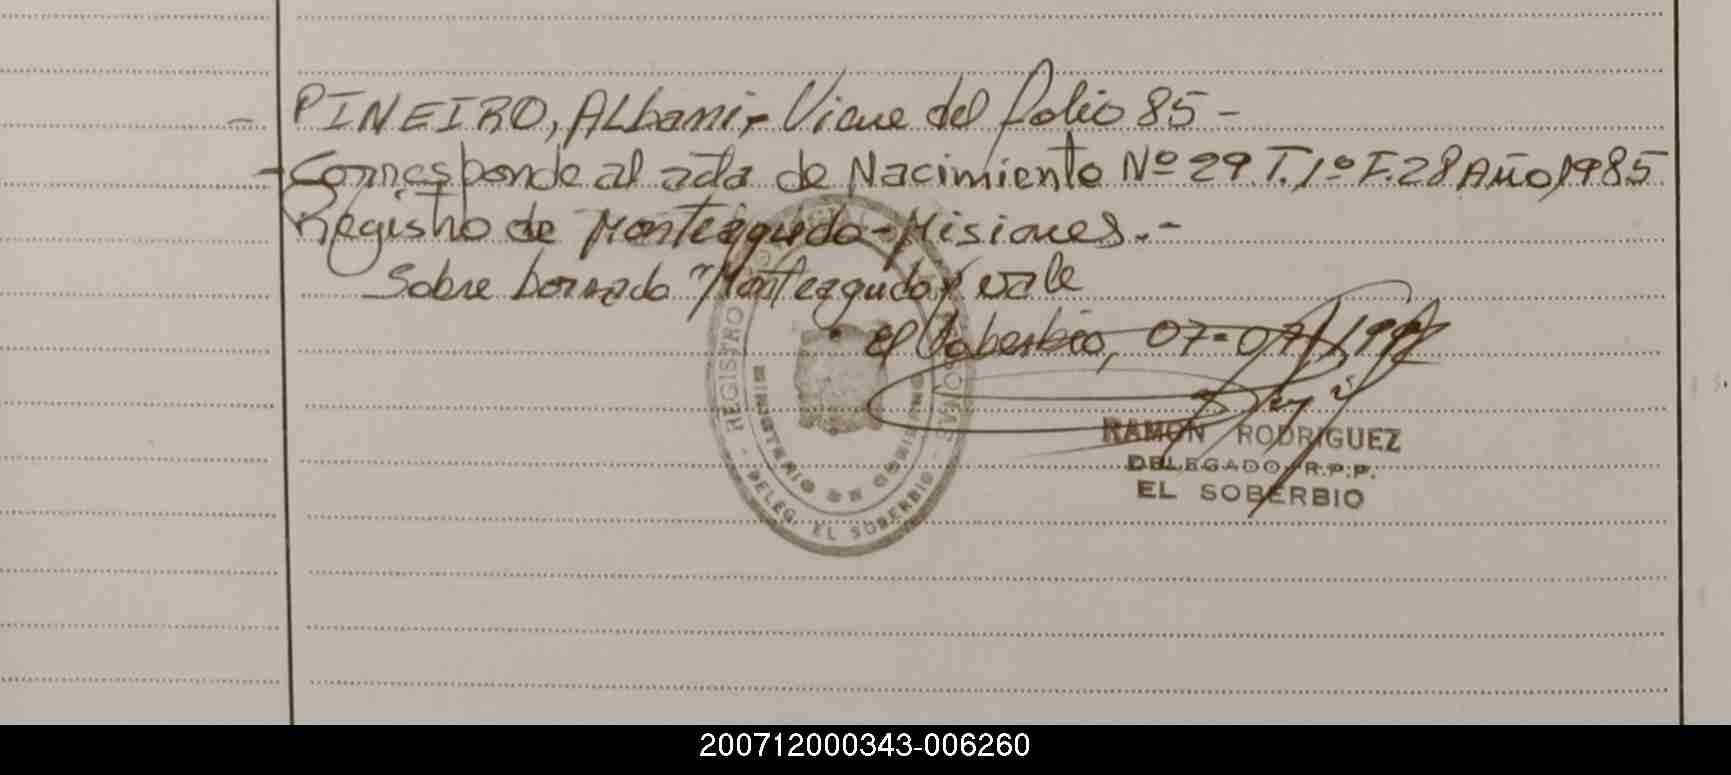 - PINEIRO, Albani,- Viene del folio 85 -
- Corresponde al acta de Nacimiento Nº 29 T. 1º F. 28 Año 1985
Registro de Monteagudo - Misiones.-
Sobre borrado "Monteagudo" vale
El Soberbio, 07-07-
RAMON RODRIGUEZ
DELEGADO R.P.P.
EL SOBERBIO
REGISTRO
MINISTERIO DE GOBIERNO
- DELEG. EL SOBERBIO -
200712000343-006260